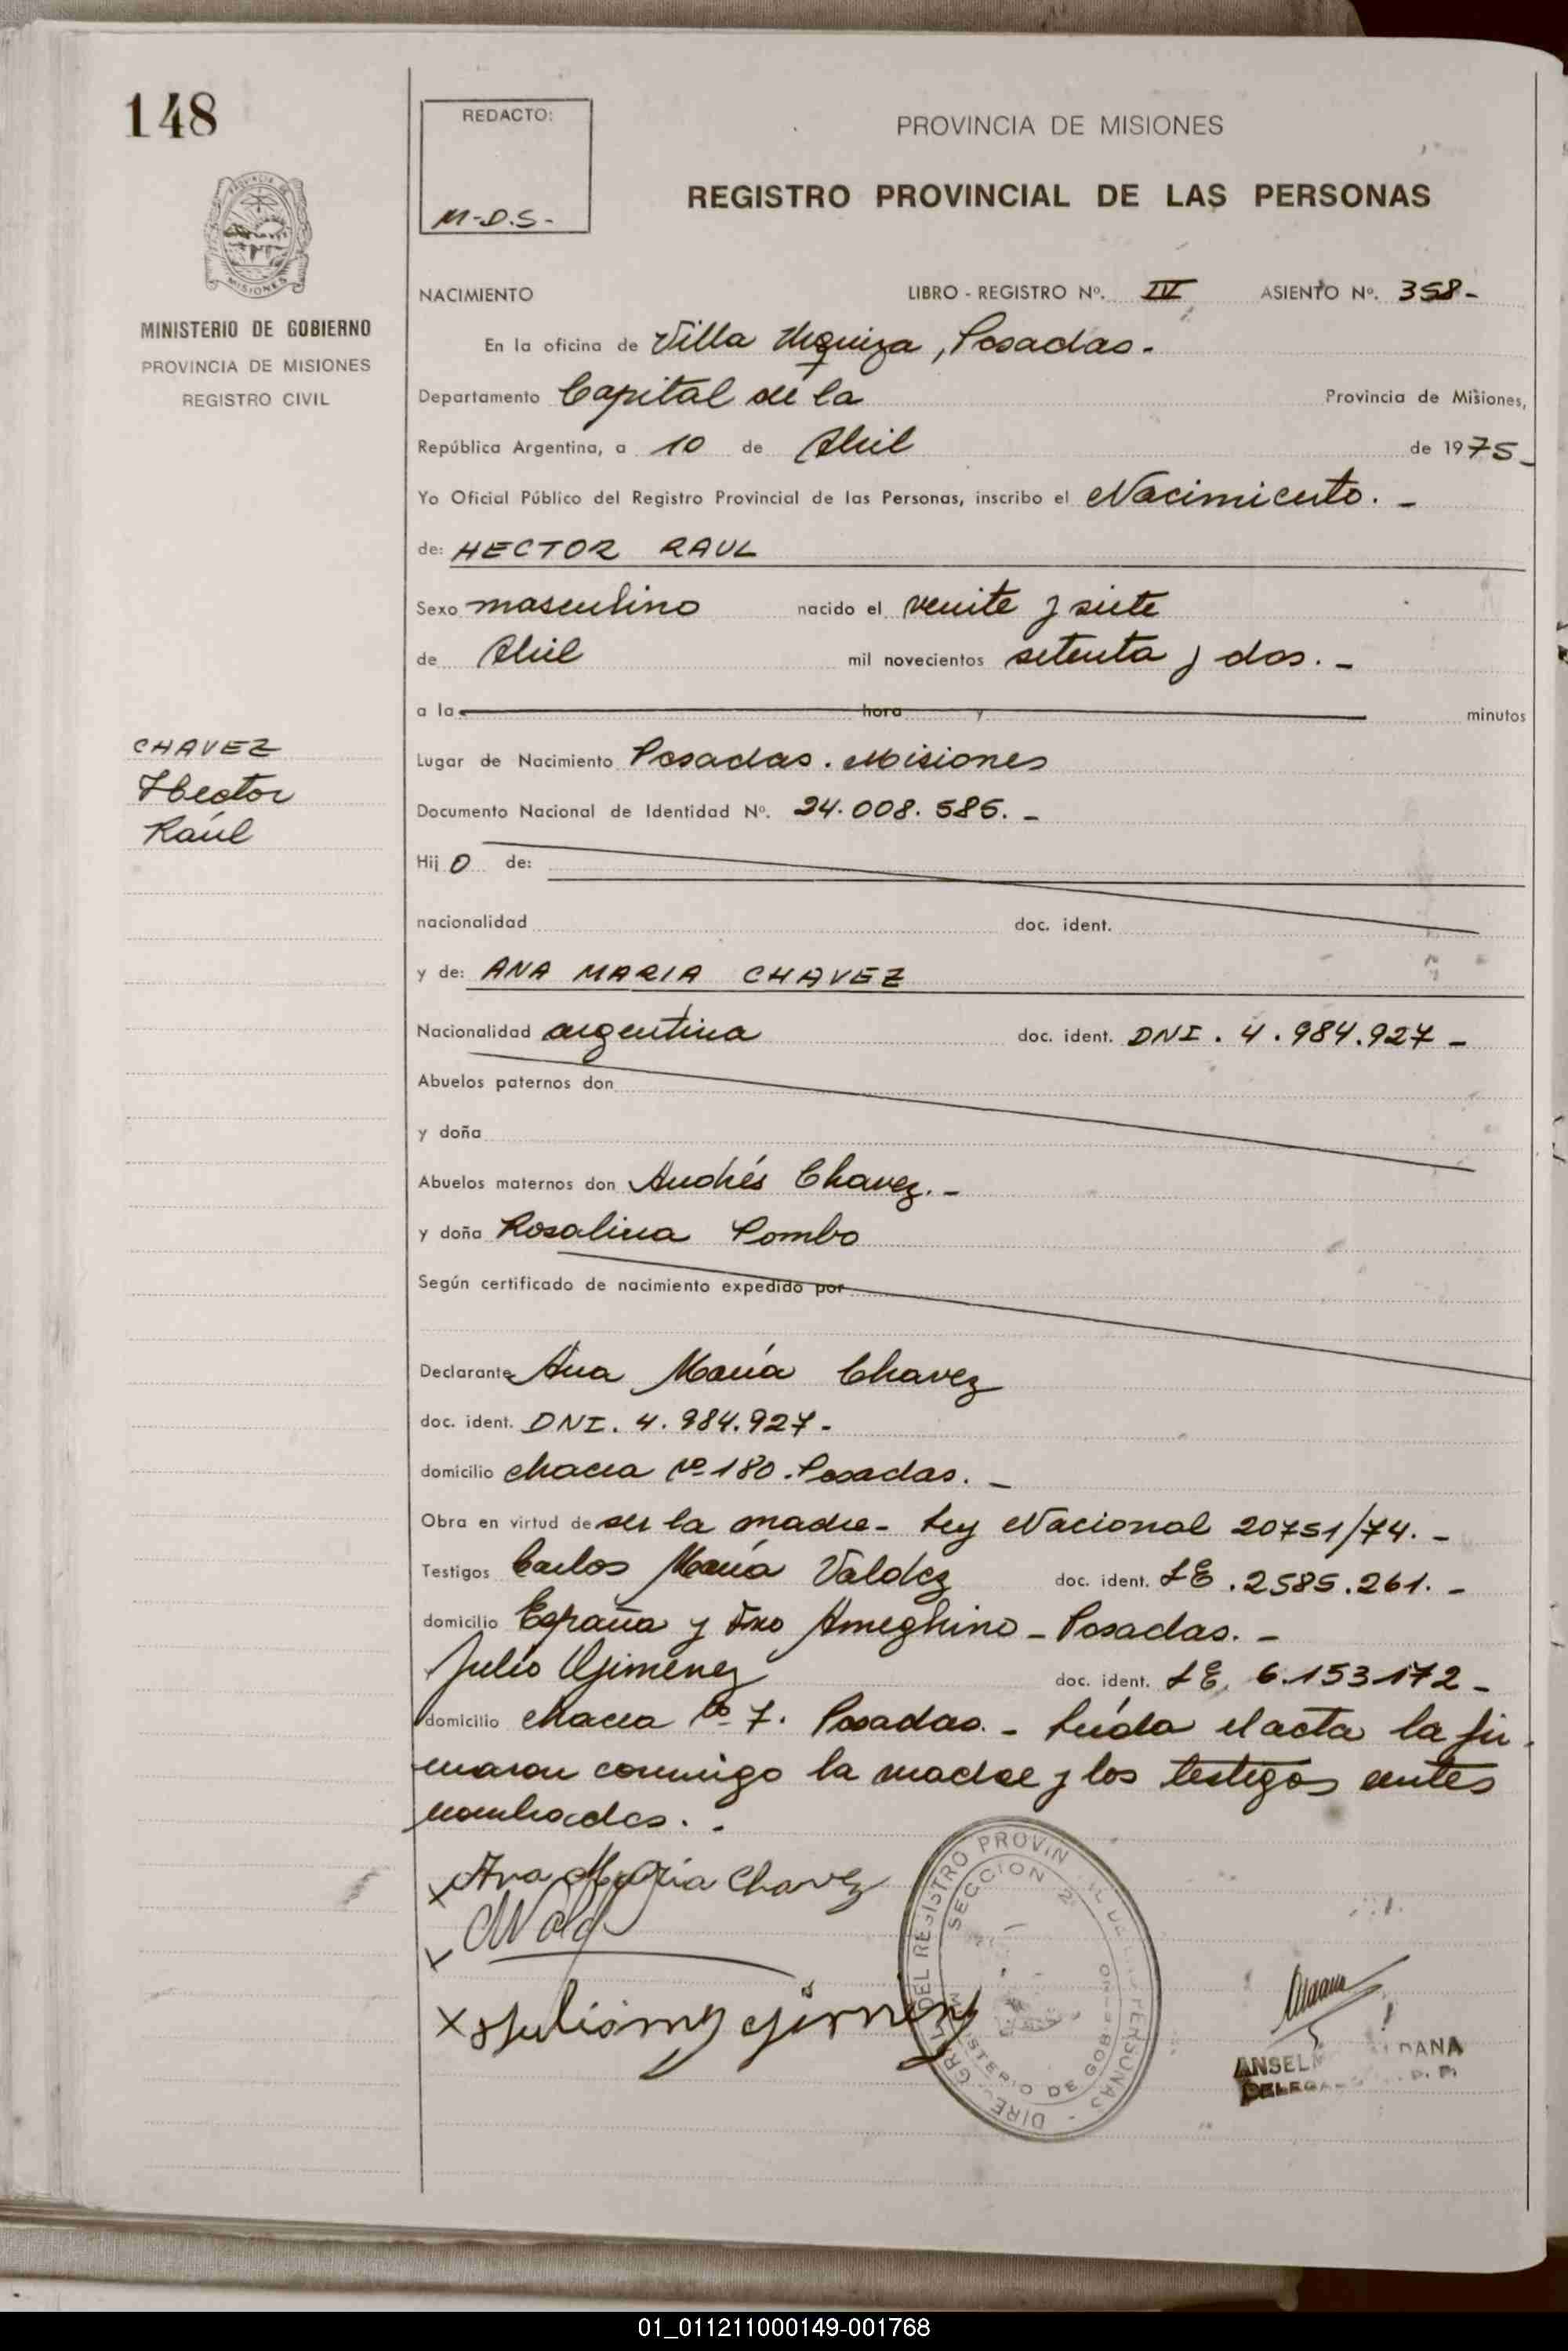 148
REDACTO:
M-D.S-
PROVINCIA DE MISIONES
REGISTRO PROVINCIAL DE LAS PERSONAS
PROVINCIA DE
MISIONES
MINISTERIO DE GOBIERNO
PROVINCIA DE MISIONES
REGISTRO CIVIL
NACIMIENTO LIBRO - REGISTRO Nº. IV ASIENTO Nº. 358-
En la oficina de Villa Urquiza, Posadas.-
Departamento Capital de la Provincia de Misiones,
República Argentina, a 10 de Abril de 1975-
Yo Oficial Público del Registro Provincial de las Personas, inscribo el Nacimiento.-
de: HECTOR RAUL
Sexo masculino nacido el veinte y siete
de Abril mil novecientos setenta y dos.-
a la hora y minutos
CHAVEZ
Hector
Raúl
Lugar de Nacimiento Posadas. Misiones
Documento Nacional de Identidad Nº. 24.008.585.-
Hijo de:
nacionalidad doc. ident.
y de: ANA MARIA CHAVEZ
Nacionalidad argentina doc. ident. DNI. 4.984.927-
Abuelos paternos don
y doña
Abuelos maternos don Andrés Chavez.-
y doña Rosalina Pombo
Según certificado de nacimiento expedido por
Declarante Ana María Chavez
doc. ident. DNI. 4.984.927-
domicilio chacra Nº 180. Posadas.-
Obra en virtud de ser la madre- Ley Nacional 20751/74.-
Testigos Carlos María Valdez doc. ident. LE.2585.261.-
domicilio España y Fno Ameghino-Posadas.-
Julio Gimenez doc. ident. LE. 6.153.172-
domicilio chacra Nº 7. Posadas.- Leída el acta la fir-
maron conmigo la madre y los testigos antes
nombrados.-
x Ana Maria Chavez
x
x Julio Gimenez
DIRE. GRL. DEL REGISTRO PROVIN PERSONAS
SECCION 2
MINISTERIO DE GOBIERNO
ANSEL DANA
DELEGA
01_011211000149-001768